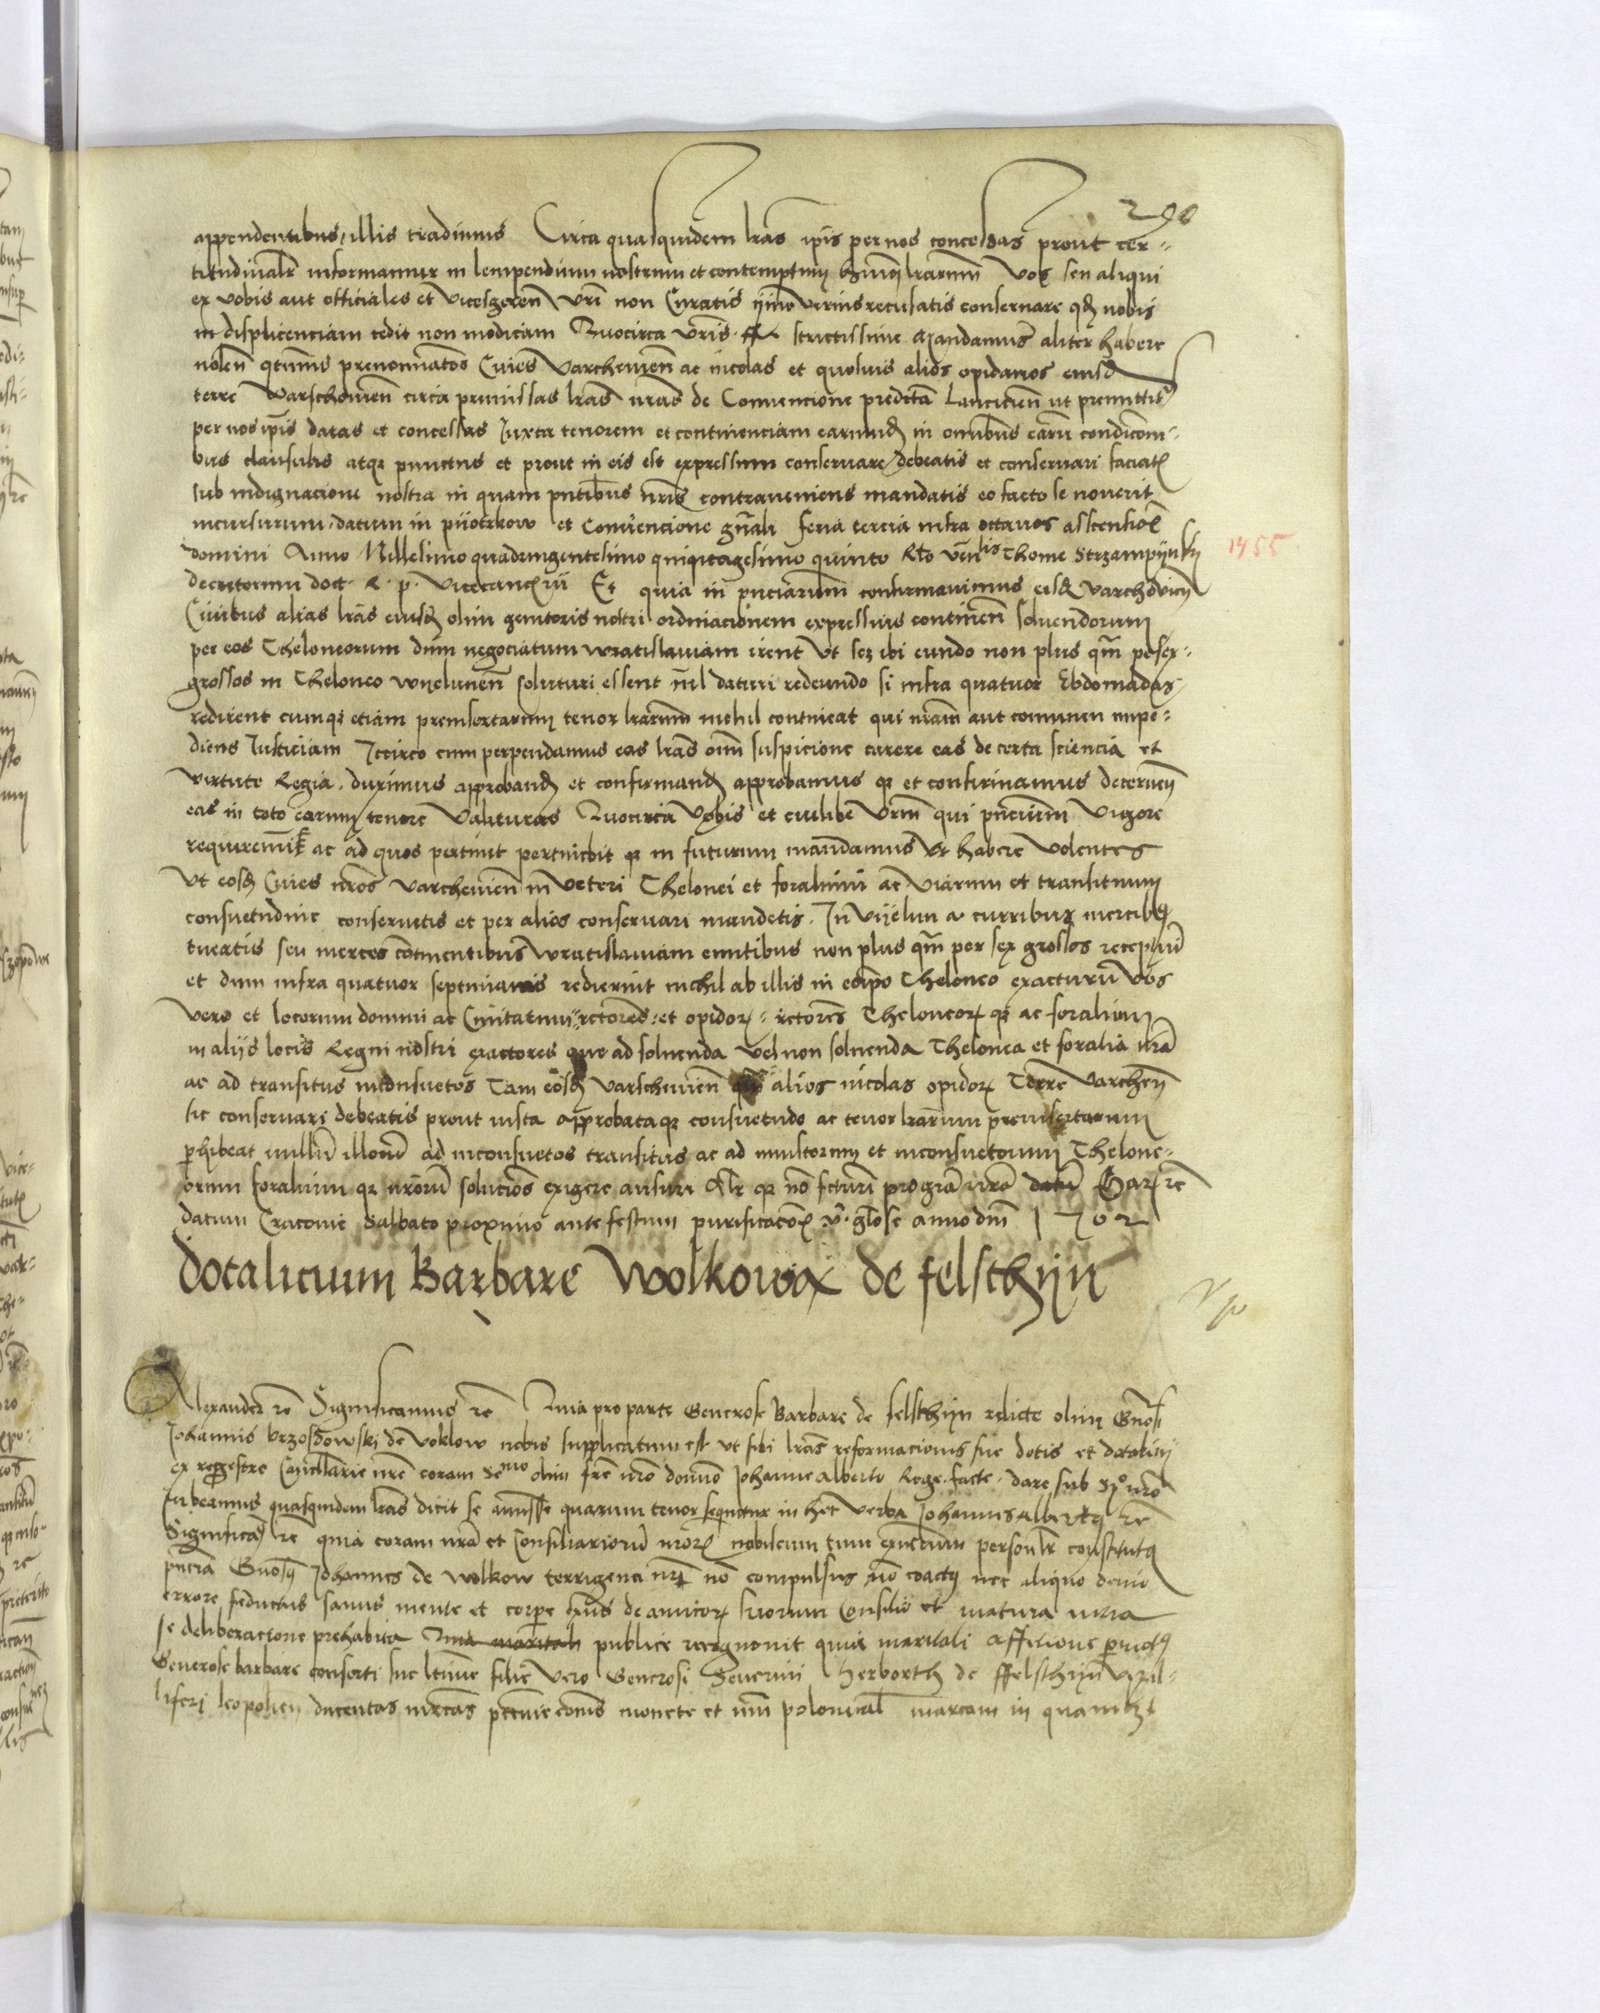 290
appendentibus, illis tradimus Circa quasquidem lr̃as ip̃is per nos concessas prout cer-
titudinalr̃ informamur in lempendium nostrum et contemptum lr̃arum Vos seu aliqui
ex vobis aut officiales et vicesgeren̄ vr̃i non Curatis ymo verius recusatis conservare qd̃ nobis
in displicenciam cedit non modicam Quocirca vr̃is strictissime Mandamus aliter habere
nolen̄ q̃tinus prenominatos Cives Varschevien̄ ac incolas et quosuis alios opidanos eiusd
terre Warschovien̄ circa premissas lr̃as nr̃as de Convencione predicta Lancicien̄ ut premittit
per nos ip̃is datas et concessas Juxta tenorem et continenciam earundẽ in omĩbus earũ condicioni-
bus clausulis atq3 punctis et prout in eis est expressum conservare debeatis et conservari faciatꝭ
sub indignacione nostra in quam pñtibus nr̃is contraveniens mandatis eo facto se noverit
incursurum. datum in piiotrkow et Convencione gñali feria tercia infra octavas Ascensioꝭ
domini Anno Millesimo quadringentesimo quinquagesimo quinto Rl̃o veñlis Thome Strzampijnskij 1455
decretorum doct. R. p. vicecancꝭrii Et quia in pñciarum confirmavimus eisdẽ varchovien̄
Civibus alias lr̃as eiusdẽ olim genitoris nostri ordinacionem expressius continen̄ solvendorum
per eos Theloneorum dum negociatum wratislaviam irent Ut scz ibi eundo non plus qm̃ per sex-
grossos in Theloneo wyelunen̄ soluturi essent nil daturi redeundo si infra quatuor Ebdomadas
redirent cumq3 etiam preinsertarum tenor lr̃arum nichil contineat qui nr̃am aut comunem impe-
diens Justiciam Iccirco cum perpendamus eas lr̃as om̃i suspicione carere eas de certa sciencia et
virtute Regia. duximus approband̃ et confirmand̃ approbamus q3 et confirmamus decernen̄
eas in toto earum tenore Valituras Quocirca Vobis et cuilibet vr̃m qui pñcium vigore
ac ad quos pertinet pertinebit q3 in futurum mandamus habere volentes
Ut eosdẽ Cives nr̃os varchevien̄ in veteri Thelonei et foralium ac viarum et transituum
consuetudine conservetis et per alios conservari mandetis. In Vijelun a curribus
seu merces continentibus wratislaviam euntibus non plus qm̃ per sex grossos recepturi
et dum infra quatuor septimanis redierint nichil ab illis in eoip̃o Theloneo exacturi Vos
vero et locorum domini ac Civitatum rectores et opidorꝭ rectores Theloneorꝭ q3 ac foralium
in alijs locis Regni nostri exactores quo ad solvenda vel non solvenda Thelonea et foralia
ac ad transitus inconsuetos Tam eosdẽ varschevien̄ qm̃ alios incolas opidorꝭ Terre varchen̄
sic conservari debeatis prout iusta approbataq3 consuetudo ac tenor lr̃arum preinsertarum
ꝓhibeat nullũ illorũ ad inconsuetos transitus ac ad iniustorum et inconsuetorum Thelone-
orum foralium q3 soluciões exigere ausuri Alr̃ q3 nõ facturi pro gr̃a nr̃a
datum Cracovie Sabbato proximo ante festum purificacõꝭ v. gl̃ose anno dñi 1502
dotalicium Barbare Wolkowa de felschtijn
Alexander rc̃ Significamus rc̃ Quia pro parte Generose Barbare de felsthijn relicte olim Gñosi
Johannis brzosdowski de Woklow nobis supplicatum est ut sibi lr̃as reformacionis sue dotis et dotalicii
ex regestre Cancellarie nr̃e coram Seᵐᵒ olim fr̃e nr̃o domĩo Johanne alberto Rege. facte. dare sub nr̃o
Juberemus quasquidem lr̃as dicit se amisisse quarum tenor sequitur in hec verba Johannes albertꝰ rc̃
Significaꝰ rc̃ quia coram nr̃a et Consiliariorũ nr̃orꝭ nobiscum tum personalr̃ constitutꝰ
pñcia Gñosꝰ Johannes de wolkow terrigena nr̃ nõ compulsus nõ coactꝰ nec aliquo devio
errore seductus sanus mente et corpore exñs de amicorꝭ suorum Consilio et matura
se deliberacione prehabita publice recognovit quia maritali affectione
Generose barbare consorti sue ltime filie vero Generosi Severini herborth de ffelsthijn vexil-
liferi leopolien̄ ducentas mr̃cas pecunie cõmunis monete et nũi polonical̃ marcam in quamlz̃